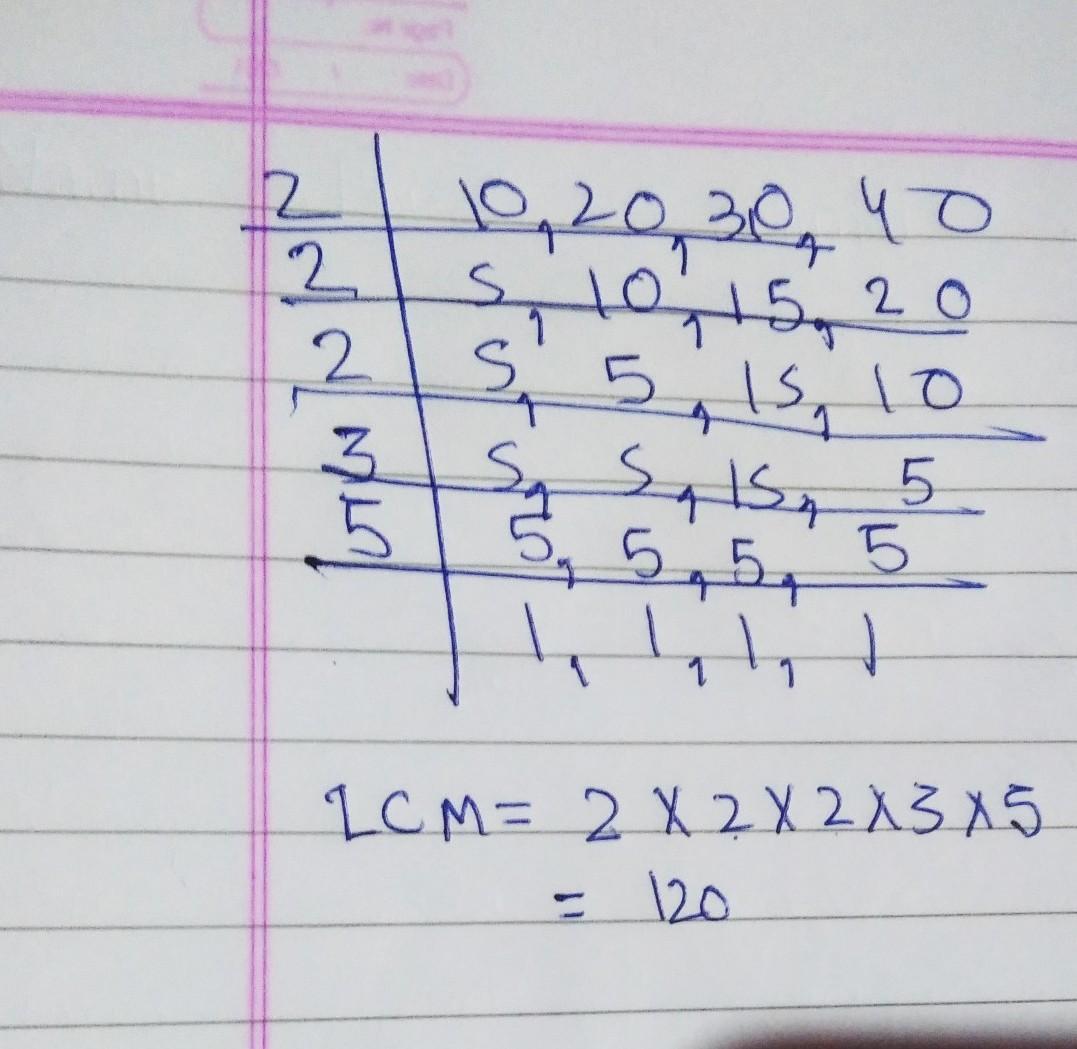 2 | 10, 20, 30, 40
2 | 5, 10, 15, 20
2 | 5, 5, 15, 10
3 | 5, 5, 15, 5
5 | 5, 5, 5, 5
1, 1, 1, 1
LCM = 2 × 2 × 2 × 3 × 5
= 120